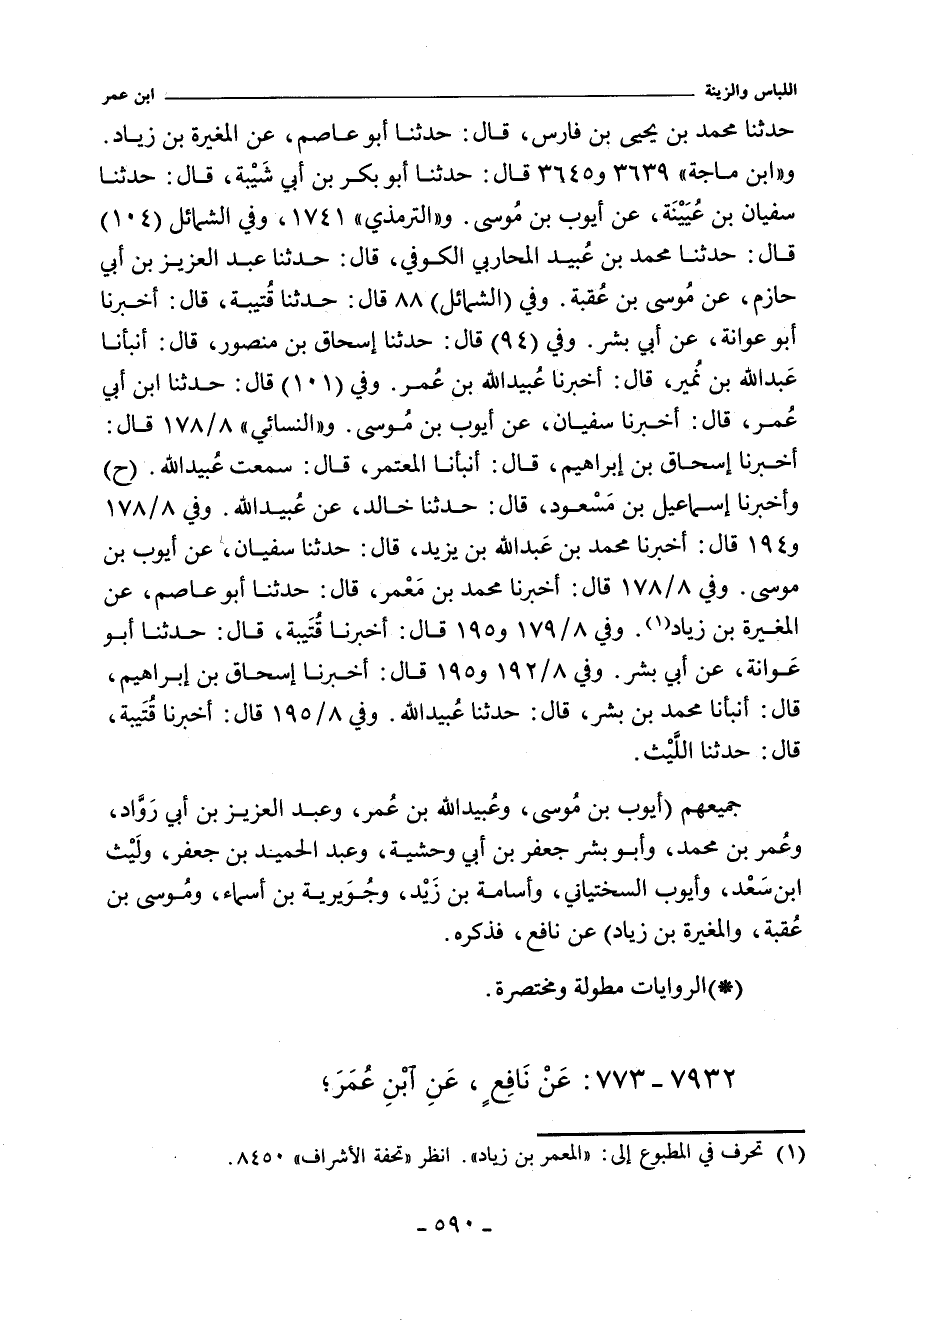 اللباس والزينة ــــــــــ ابن عمر
حدثنا محمد بن يحيى بن فارس، قال: حدثنا أبو عاصم، عن المغيرة بن زياد.
و«ابن ماجة» ٣٦٣٩ و٣٦٤٥ قال: حدثنا أبو بكر بن أبي شَيْبة، قال: حدثنا
سفيان بن عُيَيْنَة، عن أيوب بن مُوسى. و«الترمذي» ١٧٤١، وفي الشمائل (١٠٤)
قال: حدثنا محمد بن عُبيد المحاربي الكوفي، قال: حدثنا عبد العزيز بن أبي
حازم، عن مُوسى بن عُقبة. وفي (الشمائل) ٨٨ قال: حدثنا قُتيبة، قال: أخبرنا
أبو عوانة، عن أبي بشر. وفي (٩٤) قال: حدثنا إسحاق بن منصور، قال: أنبأنا
عَبدالله بن نُمير، قال: أخبرنا عُبيدالله بن عُمر. وفي (١٠١) قال: حدثنا ابن أبي
عُمر، قال: أخبرنا سفيان، عن أيوب بن مُوسى. و«النسائي» ١٧٨/٨ قال:
أخبرنا إسحاق بن إبراهيم، قال: أنبأنا المعتمر، قال: سمعت عُبيدالله. (ح)
وأخبرنا إسماعيل بن مَسْعود، قال: حدثنا خالد، عن عُبيدالله. وفي ١٧٨/٨
و١٩٤ قال: أخبرنا محمد بن عَبدالله بن يزيد، قال: حدثنا سفيان، عن أيوب بن
موسى. وفي ١٧٨/٨ قال: أخبرنا محمد بن مَعْمر، قال: حدثنا أبو عاصم، عن
المغيرة بن زياد(١). وفي ١٧٩/٨ و١٩٥ قال: أخبرنا قُتَيبة، قال: حدثنا أبو
عَوانة، عن أبي بشر. وفي ١٩٢/٨ و١٩٥ قال: أخبرنا إسحاق بن إبراهيم،
قال: أنبأنا محمد بن بشر، قال: حدثنا عُبيدالله. وفي ١٩٥/٨ قال: أخبرنا قُتَيبة،
قال: حدثنا اللَّيْث.
جميعهم (أيوب بن مُوسى، وعُبيدالله بن عُمر، وعبد العزيز بن أبي رَوَّاد،
وعُمر بن محمد، وأبو بشر جعفر بن أبي وحشية، وعبد الحميد بن جعفر، ولَيْث
ابن سَعْد، وأيوب السختياني، وأسامة بن زَيْد، وجُوَيرية بن أسماء، ومُوسى بن
عُقبة، والمغيرة بن زياد) عن نافع، فذكره.
(*) الروايات مطولة ومختصرة.
٧٩٣٢ - ٧٧٣: عَنْ نَافِعٍ، عَنِ ٱبْنِ عُمَرَ؛
(١) تحرف في المطبوع إلى: «المعمر بن زياد». انظر «تحفة الأشراف» ٨٤٥٠.
- ٥٩٠ -